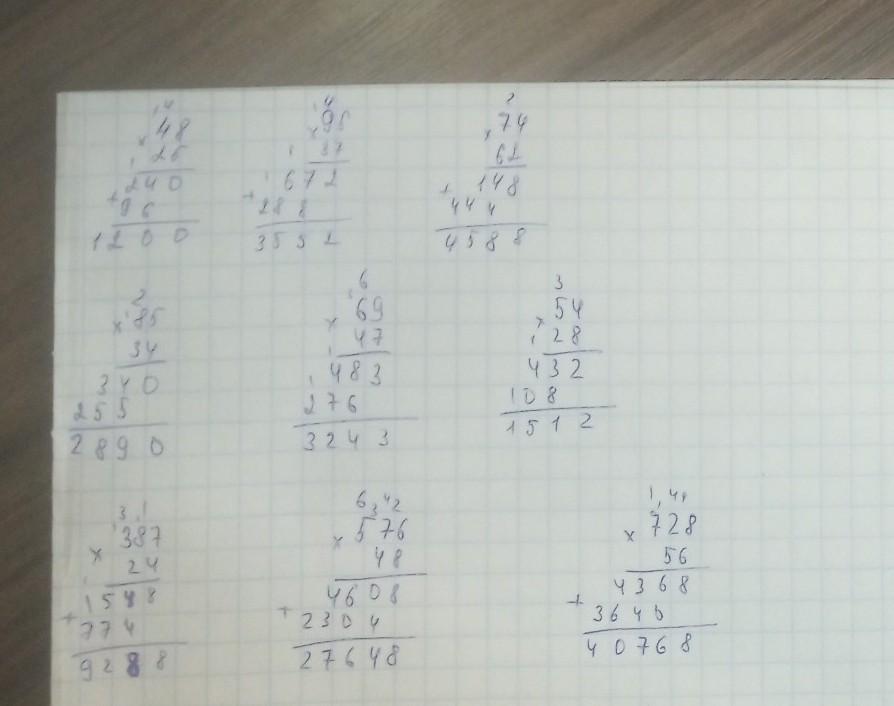 1 4
× 48
25
1
240
+ 96
1200
1 4
× 96
37
1
672
+ 288
3552
2
× 74
62
148
+ 444
4588
2
× 85
34
340
255
2890
6
× 69
47
1
483
276
3243
3
× 54
28
1
432
108
1512
3 1
× 387
24
1
1548
+ 774
9288
6 3 4 2
× 576
48
4608
+ 2304
27648
1 1 4 1
× 728
56
4368
+ 3640
40768